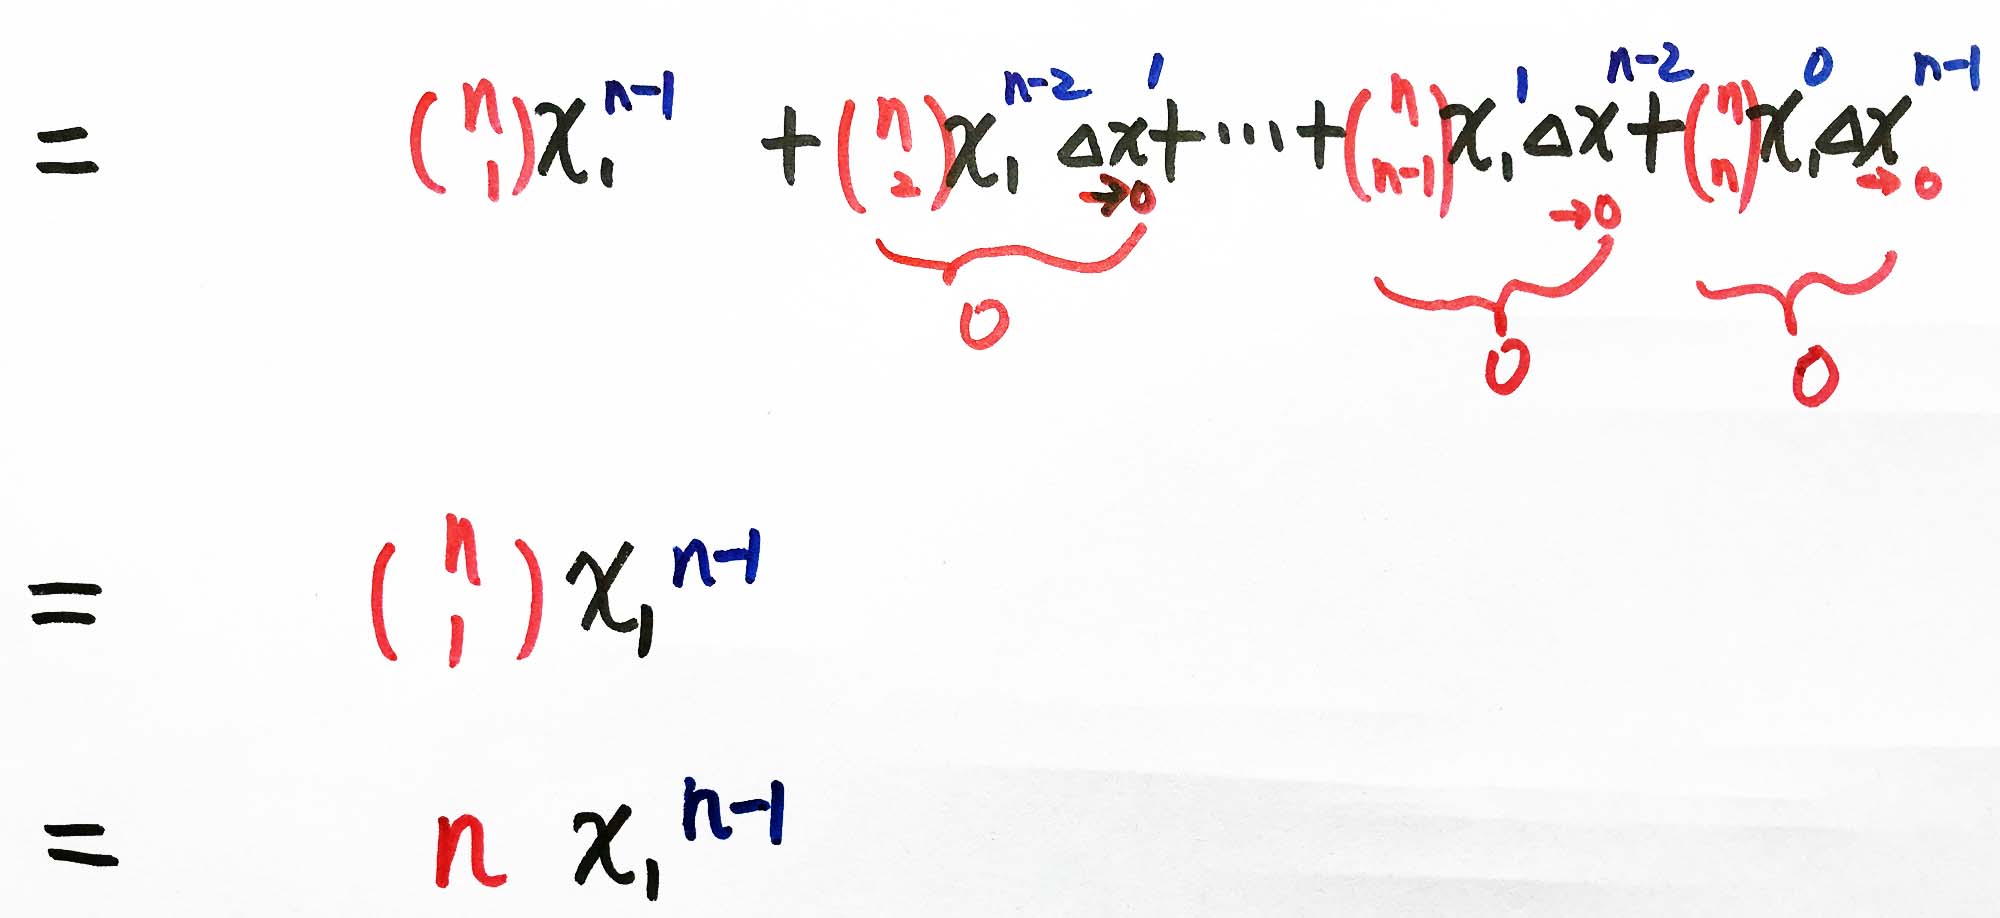 = (n 1) x₁ⁿ⁻¹ + (n 2) x₁ⁿ⁻² Δx¹ + ⋯ + (n n-1) x₁¹ Δxⁿ⁻² + (n n) x₁⁰ Δxⁿ⁻¹
→0 →0 →0
0 0 0
= (n 1) x₁ⁿ⁻¹
= n x₁ⁿ⁻¹